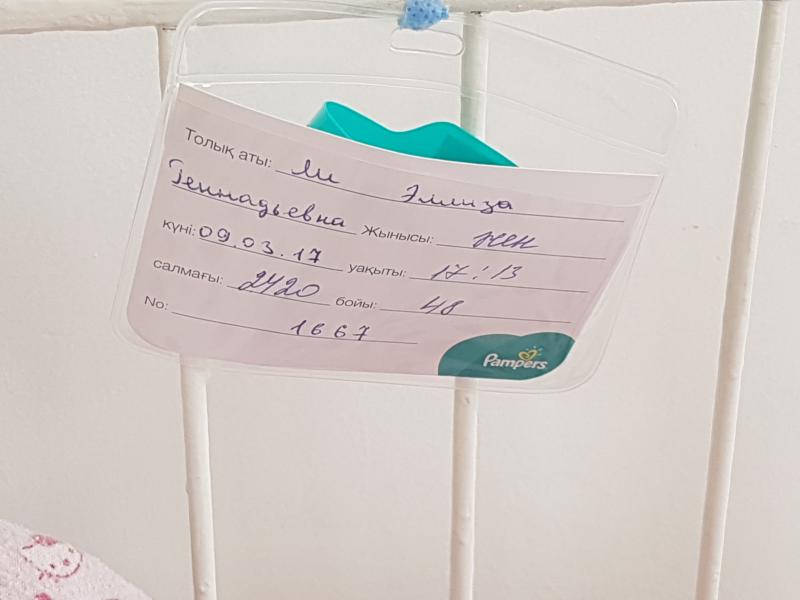 Толық аты: Ли Эллиза
Геннадьевна Жынысы: жен
күні: 09.03.17 уақыты: 17:13
салмағы: 2420 бойы: 48
No: 1667
Pampers